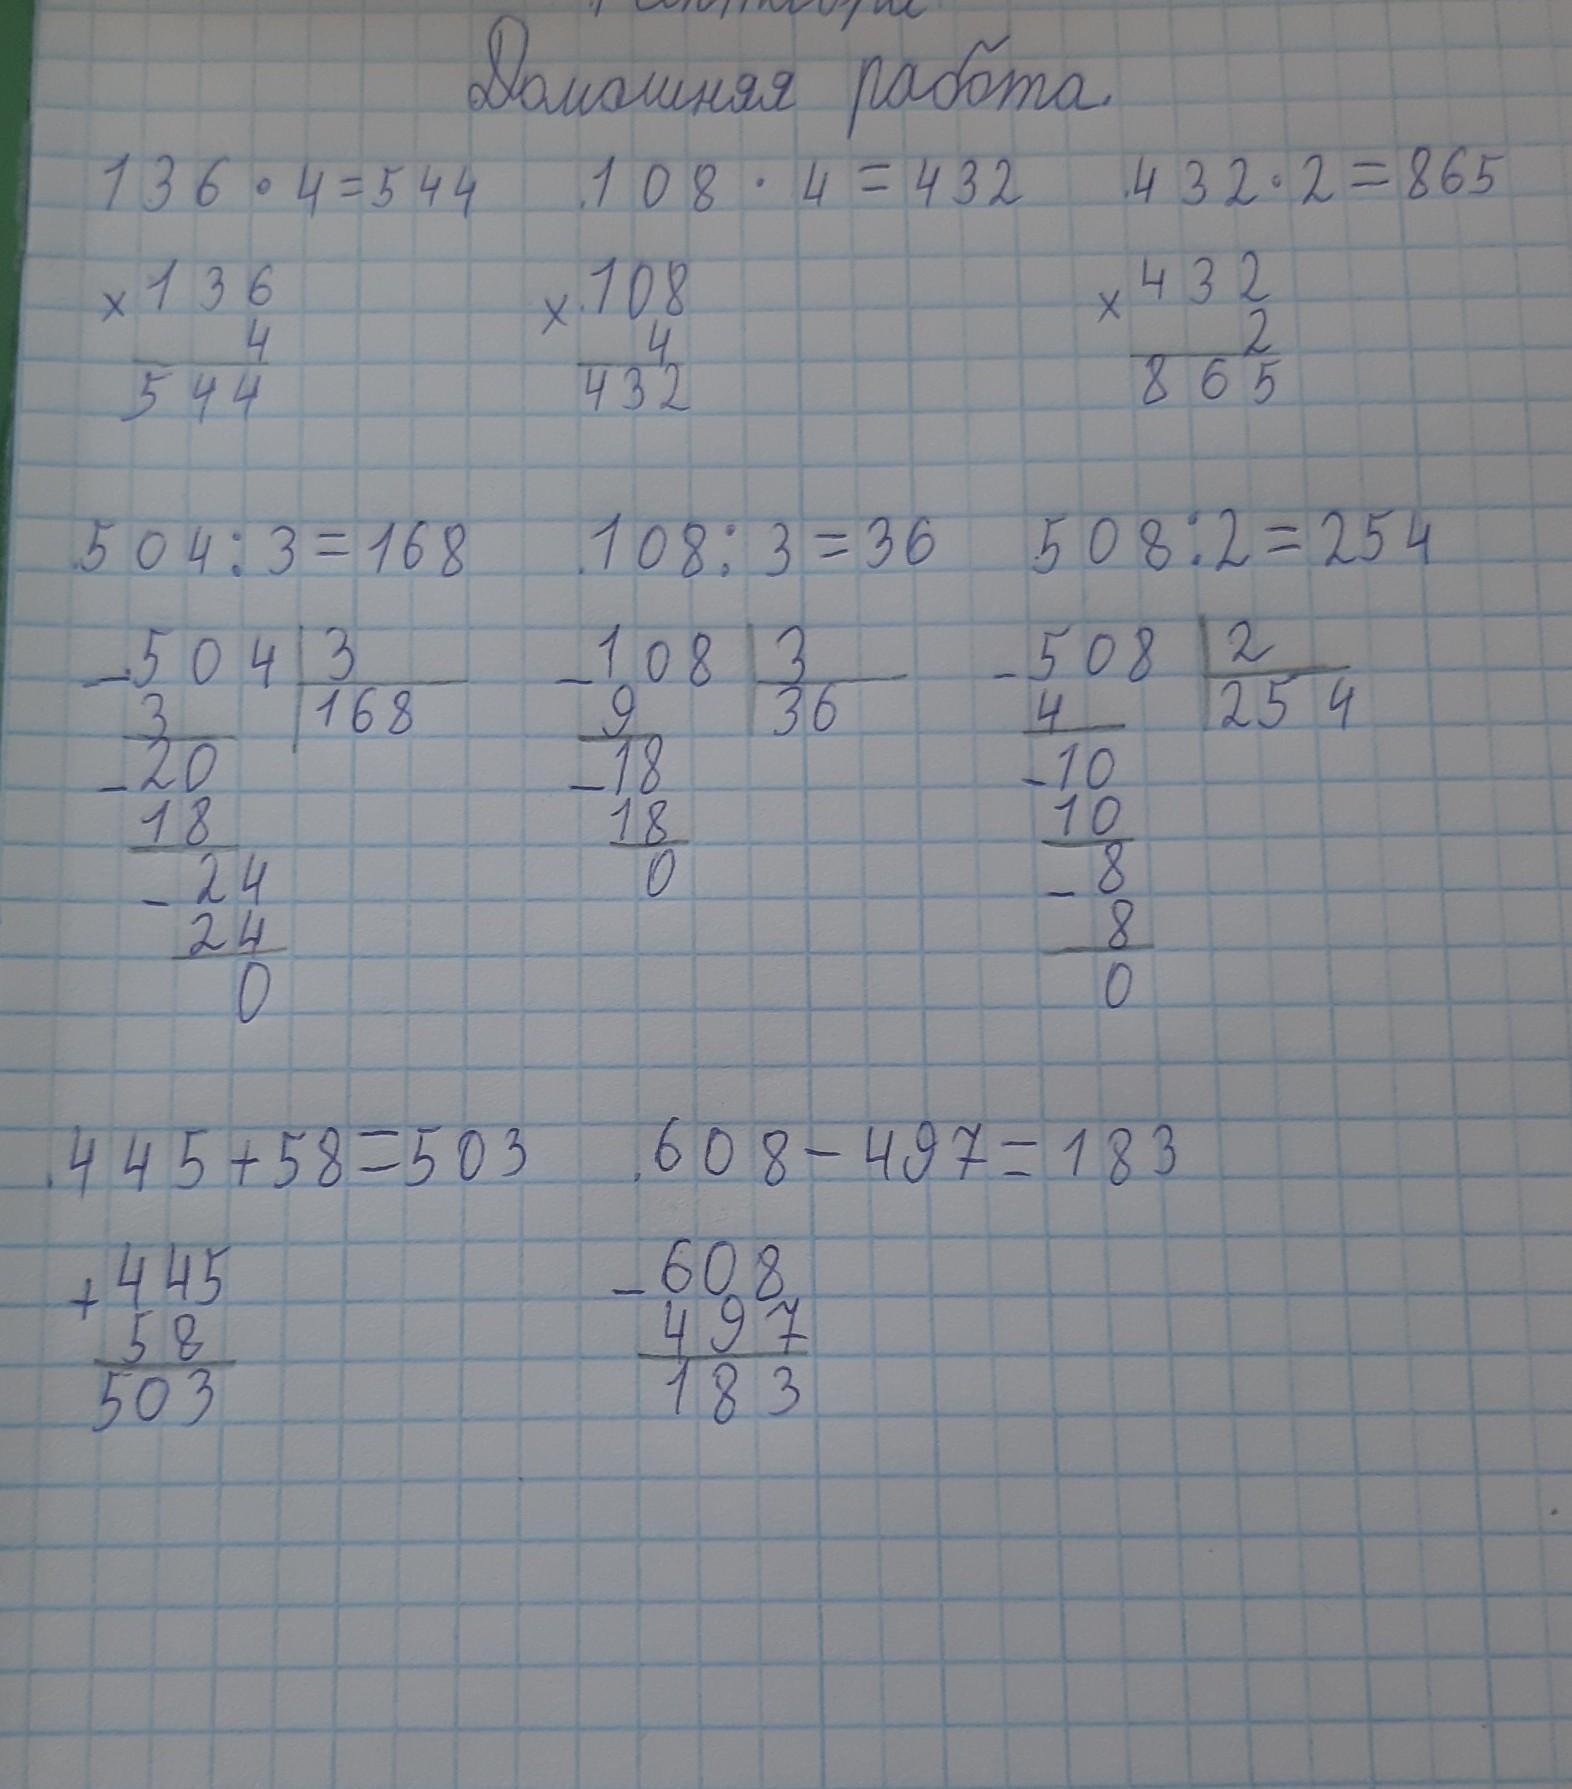 Домашняя работа.
136 · 4 = 544 108 · 4 = 432 432 · 2 = 865
× 136 × 108 × 432
4 4 2
544 432 865
504 : 3 = 168 108 : 3 = 36 508 : 2 = 254
- 504 3 - 108 3 - 508 2
3 168 9 36 4 254
- 20 - 18 - 10
18 18 10
- 24 0 - 8
24 8
0 0
445 + 58 = 503 608 - 497 = 183
+ 445 - 608
58 497
503 183